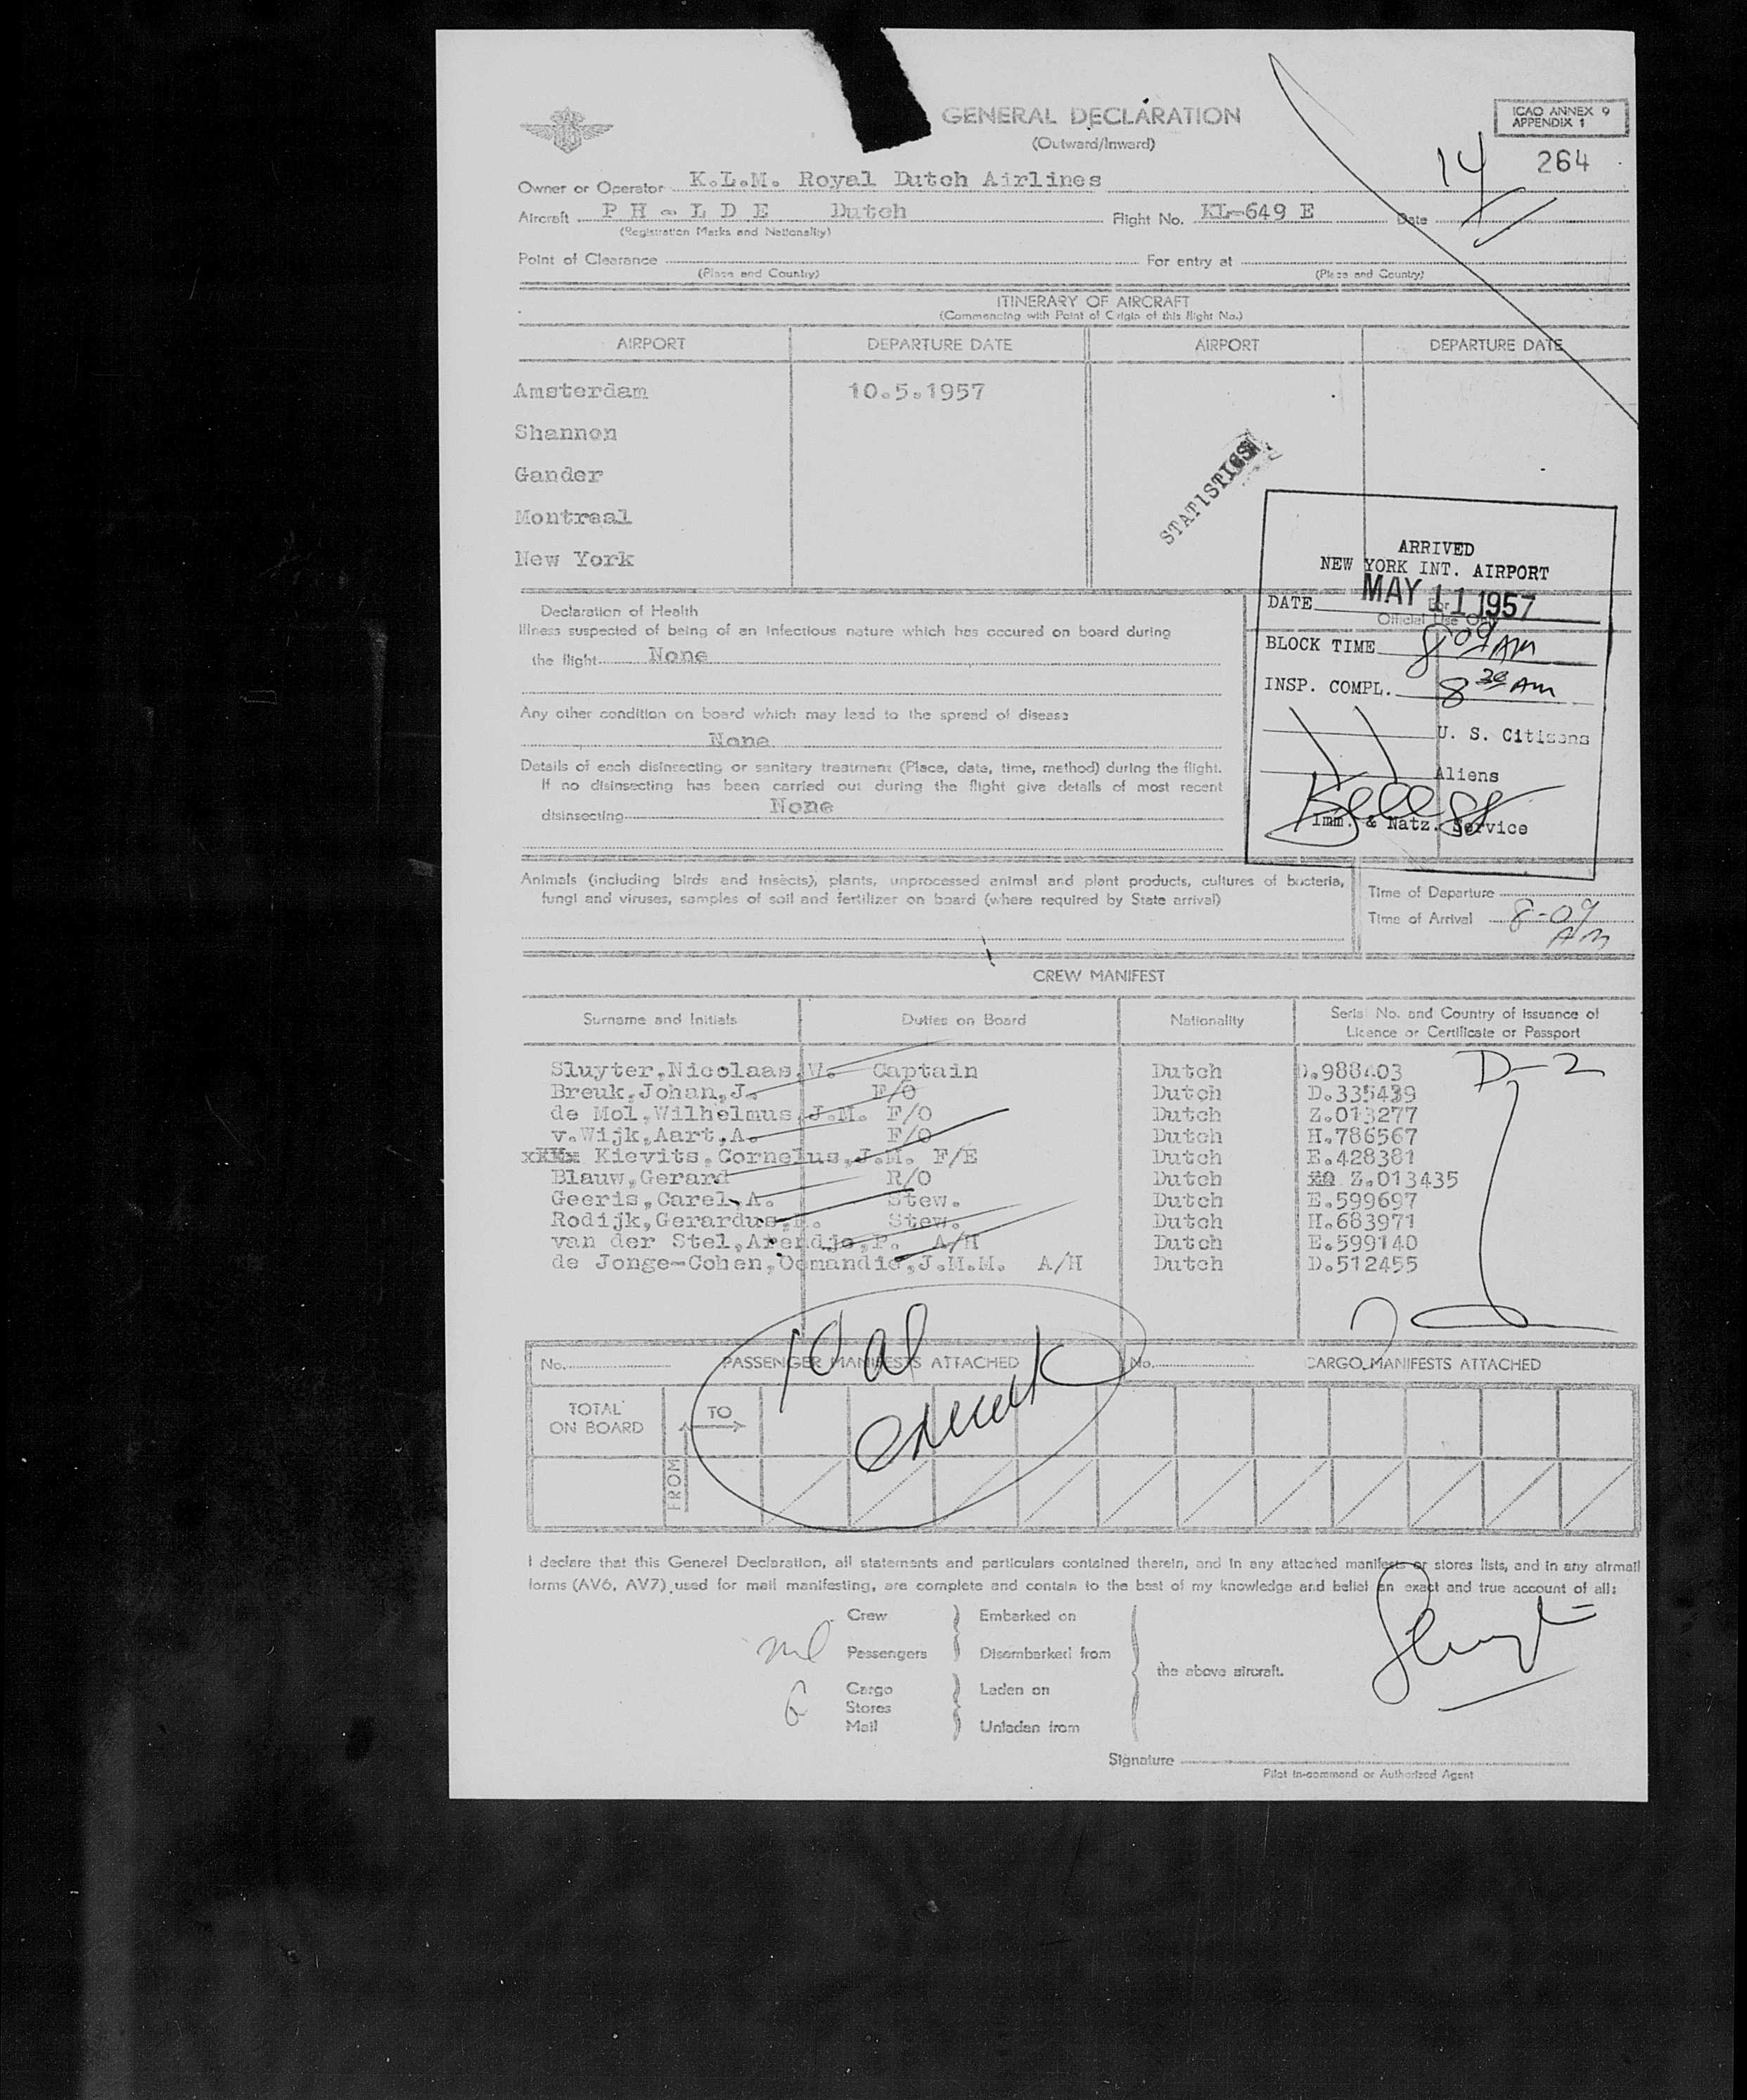 GENERAL DECLARATION
(Outward/Inward)
ICAO ANNEX 9
APPENDIX 1
14
264
Owner or Operator K.L.M. Royal Dutch Airlines
Aircraft P H - L D E Dutch Flight No. KL-649 E Date
(Registration Marks and Nationality)
Point of Clearance For entry at
(Place and Country) (Place and Country)
ITINERARY OF AIRCRAFT
(Commencing with Point of Origin of this flight No.)
AIRPORT DEPARTURE DATE AIRPORT DEPARTURE DATE
Amsterdam 10.5.1957
Shannon
Gander
Montreal
New York
STATISTICS
ARRIVED
NEW YORK INT. AIRPORT
DATE MAY 11 1957
For
Official Use Only
BLOCK TIME 8 09 AM
INSP. COMPL. 8 AM
U. S. Citizens
Aliens
Imm. & Natz. Service
Declaration of Health
Illness suspected of being of an infectious nature which has occured on board during
the flight None
Any other condition on board which may lead to the spread of disease
None
Details of each disinsecting or sanitary treatment (Place, date, time, method) during the flight.
If no disinsecting has been carried out during the flight give details of most recent
disinsecting None
Animals (including birds and insects), plants, unprocessed animal and plant products, cultures of bacteria,
fungi and viruses, samples of soil and fertilizer on board (where required by State arrival)
Time of Departure
Time of Arrival 8-09
AM
CREW MANIFEST
Surname and Initials Duties on Board Nationality Serial No. and Country of issuance of
Licence or Certificate or Passport
Sluyter,Nicolaas,W. Captain Dutch D.988403 D-2
Breuk,Johan,J. F/O Dutch D.335439
de Mol,Wilhelmus,J.M. F/O Dutch Z.013277
v.Wijk,Aart,A. F/O Dutch H.786567
Kievits,Cornelus,J.M. F/E Dutch E.428381
Blauw,Gerard R/O Dutch Z.013435
Geeris,Carel,A. Stew. Dutch E.599697
Rodijk,Gerardus, Stew. Dutch H.683971
van der Stel,Arendje,P. A/H Dutch E.599140
de Jonge-Cohen,J.M.M. A/H Dutch D.512455
No. PASSENGER MANIFESTS ATTACHED No. CARGO MANIFESTS ATTACHED
TOTAL
ON BOARD
TO
FROM
I declare that this General Declaration, all statements and particulars contained therein, and in any attached manifests or stores lists, and in any airmail
forms (AV6, AV7) used for mail manifesting, are complete and contain to the best of my knowledge and belief an exact and true account of all:
Crew Embarked on
Passengers Disembarked from
the above aircraft.
Cargo Laden on
Stores
Mail Unladen from
Signature
Pilot in-command or Authorized Agent